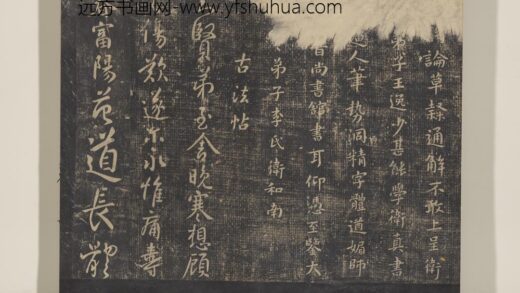 远方书画网-www.yfshuhua.com
論草隸通解不敢上呈衛
弟子王逸少甚能學衛真書
人筆勢洞精字體遒媚師
尚書館書耳仰憑至鑒大
弟子李氏衛和南
古法帖
賢弟至舍晚寒想顧
傷歎遂尔永惟痛壽
富陽范道長